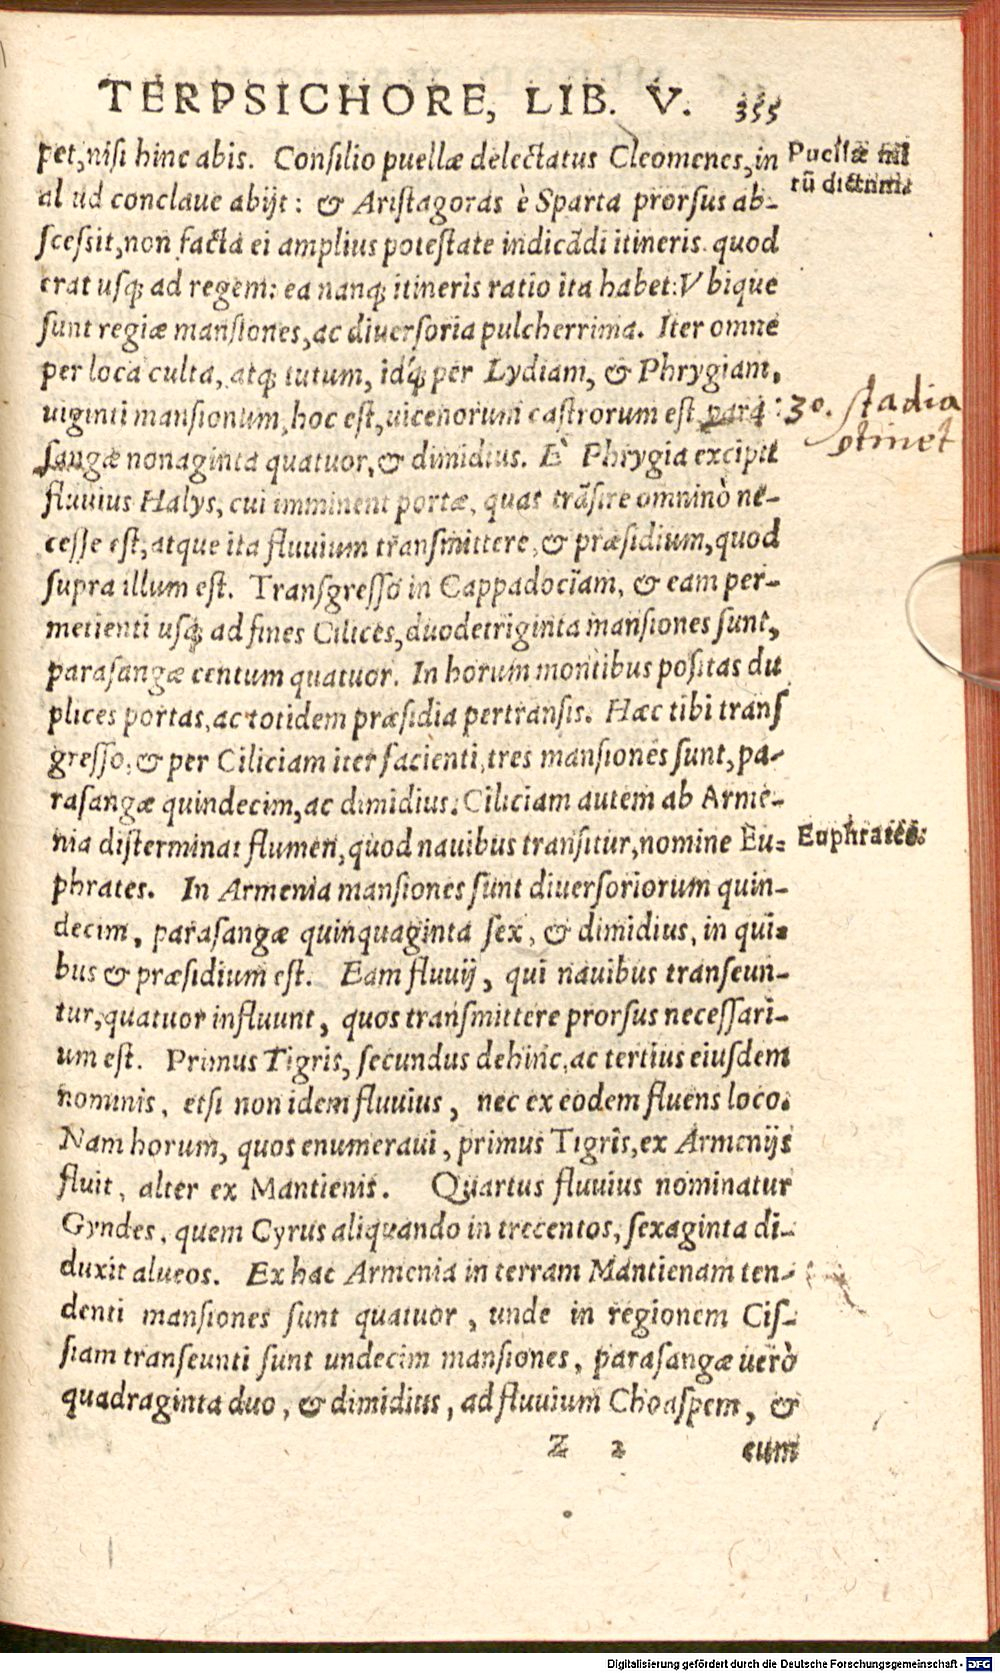 TERPSICHORE, LIB. V. 355
pet, nisi hinc abis. Consilio puellæ delectatus Cleomenes, in
al ud conclaue abijt: & Aristagoras è Sparta prorsus ab-
scessit, non facta ei amplius potestate indicādi itineris quod
erat usq; ad regem: ea nanq; itineris ratio ita habet: Vbique
sunt regiæ mansiones, ac diuersoria pulcherrima. Iter omne
per loca culta, atq; tutum, idq́; per Lydiam, & Phrygiam,
uiginti mansionum, hoc est, uicenorum castrorum est, para
sangæ nonaginta quatuor, & dimidius. E' Phrygia excipit
fluuius Halys, cui imminent portæ, quas trāsire omninò ne-
cesse est, atque ita fluuium transmittere, & præsidium, quod
supra illum est. Transgresso in Cappadociam, & eam per-
metienti usq; ad fines Cilices, duodetriginta mansiones sunt,
parasangæ centum quatuor. In horum montibus positas du
plices portas, ac totidem præsidia pertransis. Hæc tibi trans
gresso, & per Ciliciam iter facienti, tres mansiones sunt, pa-
rasangæ quindecim, ac dimidius. Ciliciam autem ab Arme-
nia disterminat flumen, quod nauibus transitur, nomine Eu-
phrates. In Armenia mansiones sunt diuersoriorum quin-
decim, parasangæ quinquaginta sex, & dimidius, in qui-
bus & præsidium est. Eam fluuij, qui nauibus transeun-
tur, quatuor influunt, quos transmittere prorsus necessari-
um est. Primus Tigris, secundus dehinc, ac tertius eiusdem
nominis, etsi non idem fluuius, nec ex eodem fluens loco.
Nam horum, quos enumeraui, primus Tigris, ex Armenijs
fluit, alter ex Mantienis. Quartus fluuius nominatur
Gyndes, quem Cyrus aliquando in trecentos, sexaginta di-
duxit alueos. Ex hac Armenia in terram Mantienam ten-
denti mansiones sunt quatuor, unde in regionem Cis-
siam transeunti sunt undecim mansiones, parasangæ uerò
quadraginta duo, & dimidius, ad fluuium Choaspem, &
Z 2 eum
Puellæ
tū dictum
30. stadia
ꝯtinet
Euphrates.
Digitalisierung gefördert durch die Deutsche Forschungsgemeinschaft - DFG